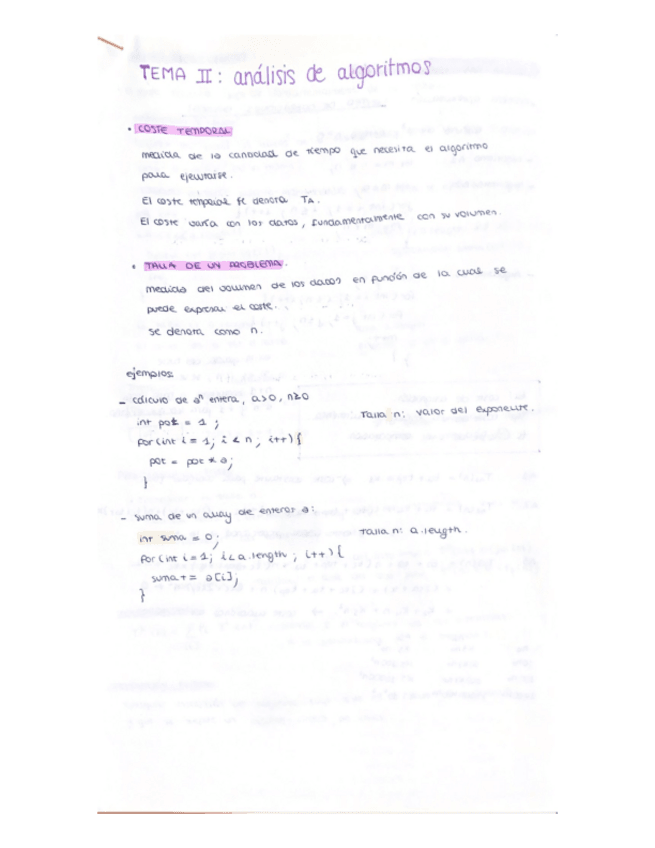 TEMA II: análisis de algoritmos
• COSTE TEMPORAL
medida de la cantidad de tiempo que necesita el algoritmo
para ejecutarse.
El coste temporal se denota TA.
El coste varía con los datos, fundamentalmente con su volumen.
• TALLA DE UN PROBLEMA.
medida del volumen de los datos en función de la cual se
puede expresar el coste.
se denota como n.
ejemplos:
- cálculo de aⁿ entera, a>0, n≥0
Talla n: valor del exponente.
int pot = 1 ;
for(int i = 1; i < n ; i++){
pot = pot * a;
}
- suma de un array de enteros a:
int suma = 0;
Talla n: a.length.
for(int i=1; i<a.length ; i++){
suma+= a[i];
}